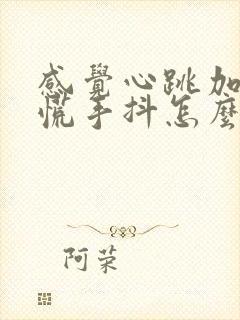 感覺心跳加
慌手抖怎麼
阿荣